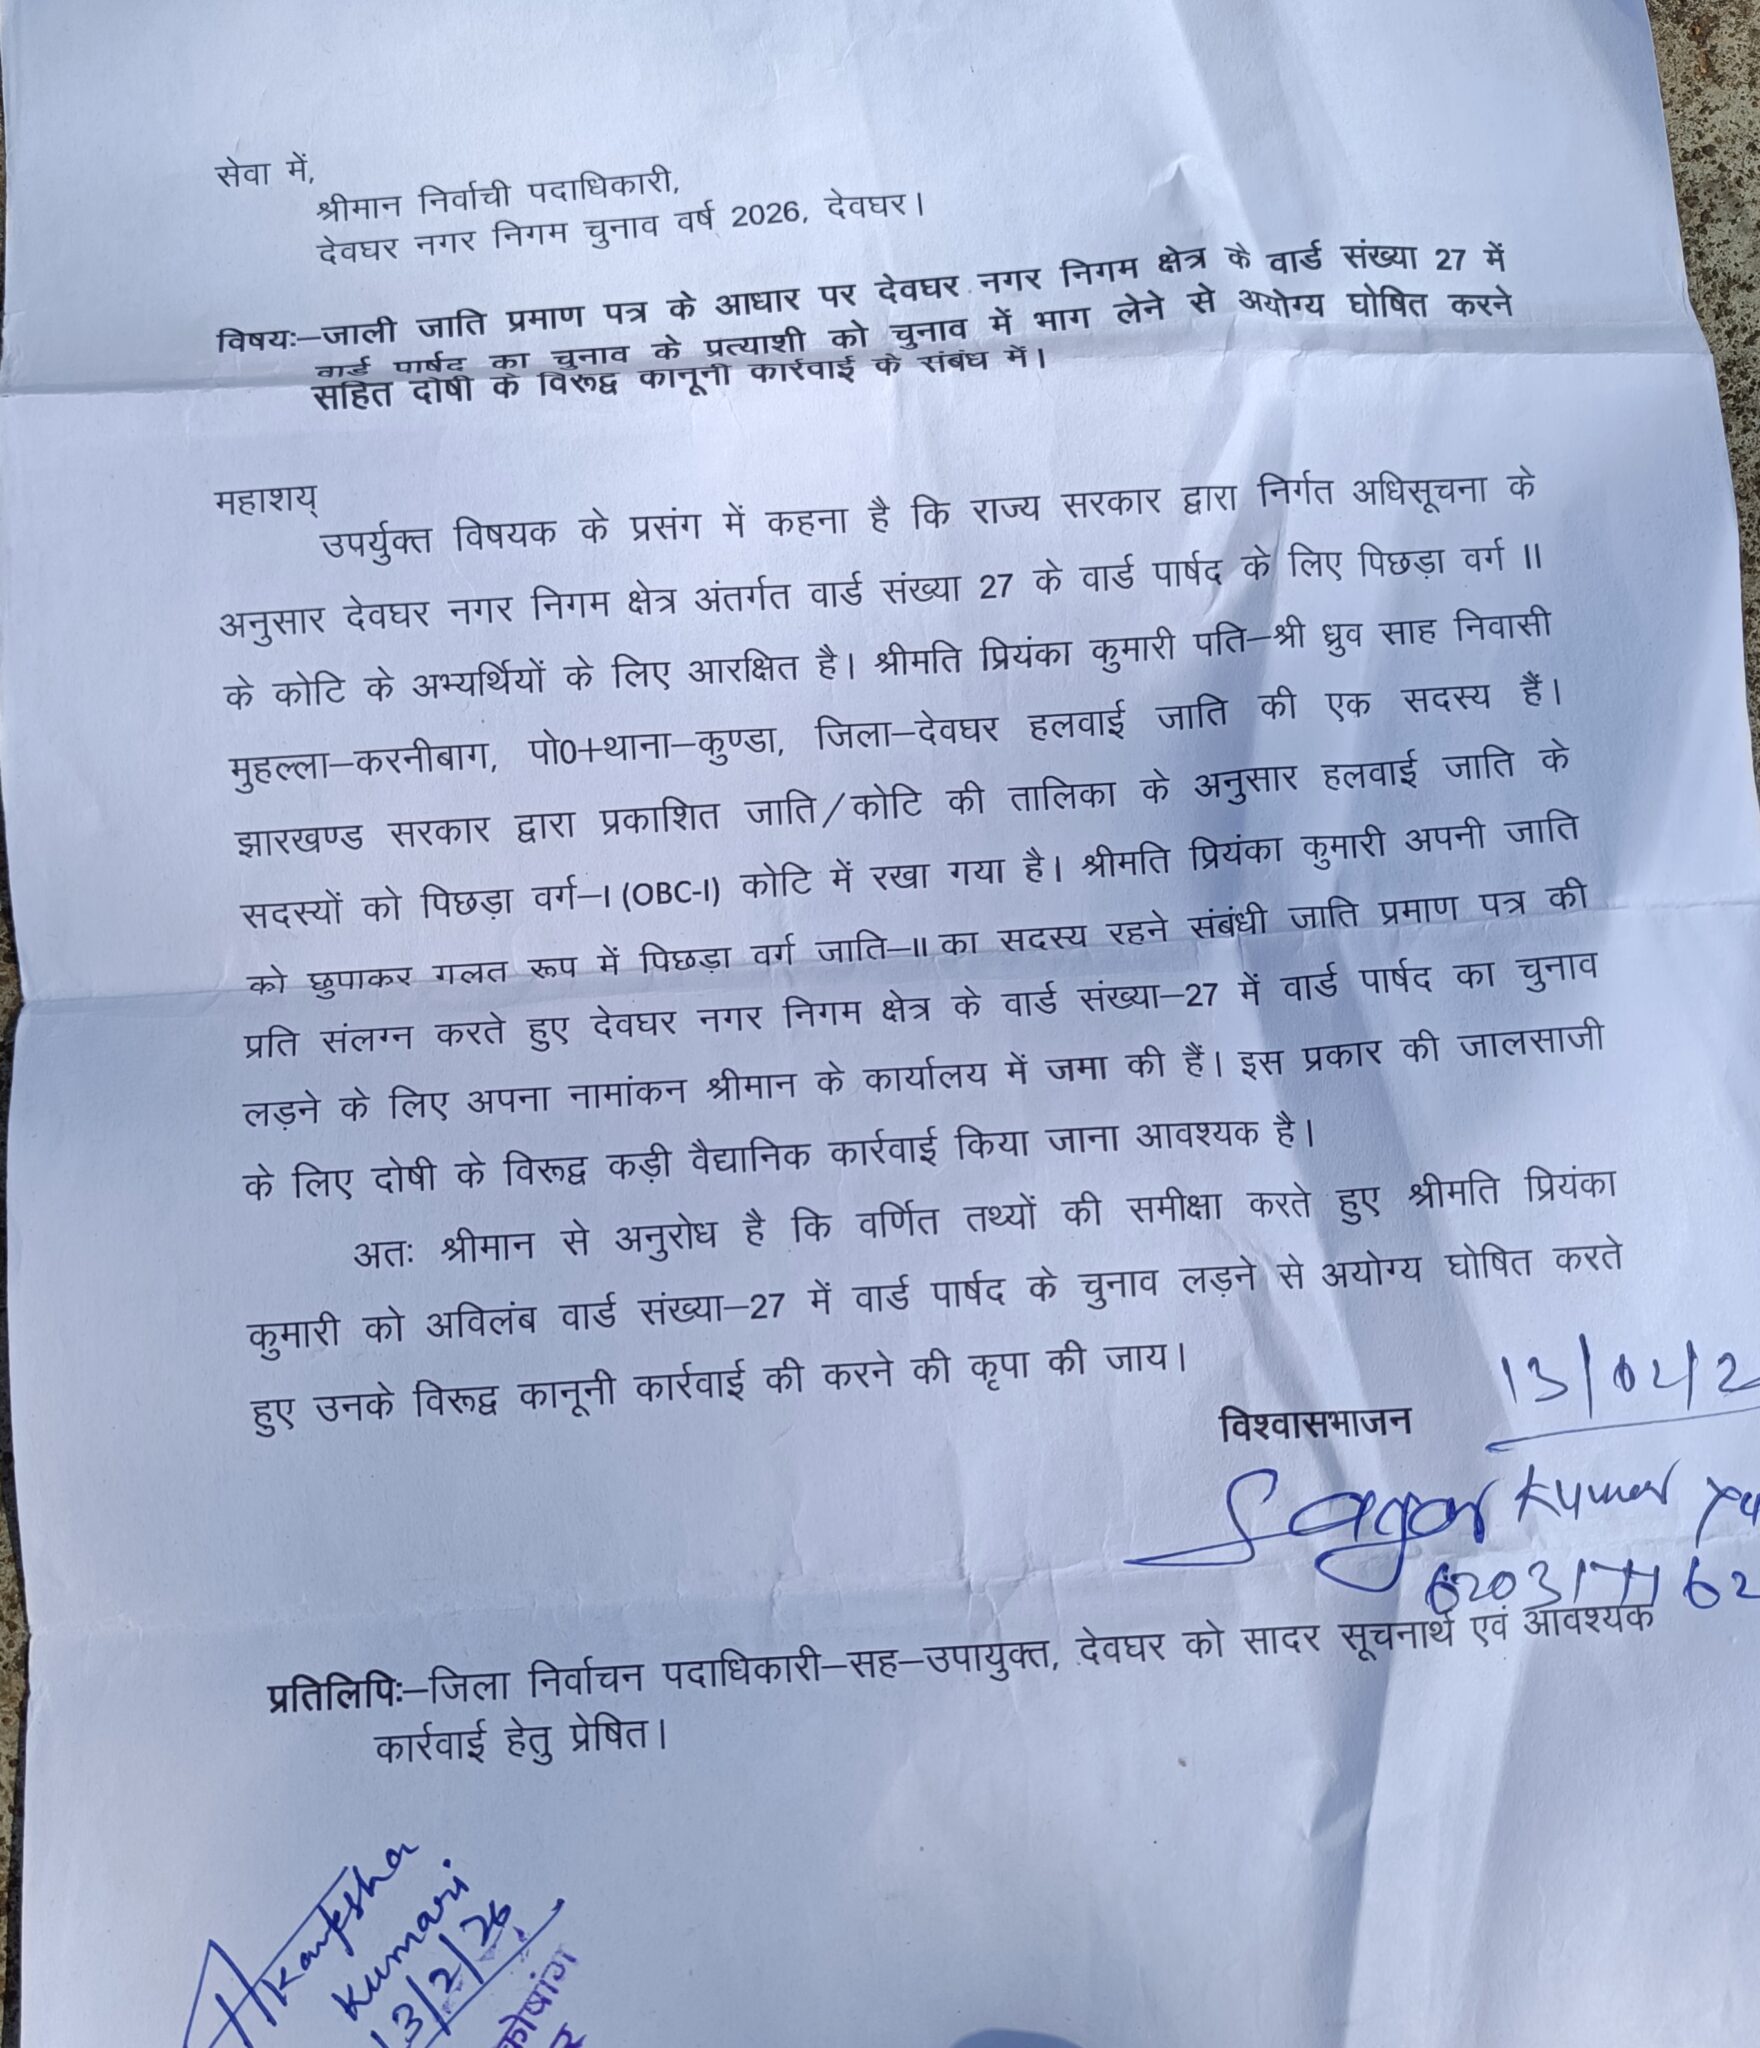 सेवा में,
श्रीमान निर्वाची पदाधिकारी,
देवघर नगर निगम चुनाव वर्ष 2026, देवघर।
विषयः–जाली जाति प्रमाण पत्र के आधार पर देवघर नगर निगम क्षेत्र के वार्ड संख्या 27 में
वार्ड पार्षद का चुनाव के प्रत्याशी को चुनाव में भाग लेने से अयोग्य घोषित करने
सहित दोषी के विरूद्व कानूनी कार्रवाई के संबंध में।
महाशय्
उपर्युक्त विषयक के प्रसंग में कहना है कि राज्य सरकार द्वारा निर्गत अधिसूचना के
अनुसार देवघर नगर निगम क्षेत्र अंतर्गत वार्ड संख्या 27 के वार्ड पार्षद के लिए पिछड़ा वर्ग II
के कोटि के अभ्यर्थियों के लिए आरक्षित है। श्रीमति प्रियंका कुमारी पति–श्री ध्रुव साह निवासी
मुहल्ला–करनीबाग, पो0+थाना–कुण्डा, जिला–देवघर हलवाई जाति की एक सदस्य हैं।
झारखण्ड सरकार द्वारा प्रकाशित जाति/कोटि की तालिका के अनुसार हलवाई जाति के
सदस्यों को पिछड़ा वर्ग–I (OBC-I) कोटि में रखा गया है। श्रीमति प्रियंका कुमारी अपनी जाति
को छुपाकर गलत रूप में पिछड़ा वर्ग जाति–II का सदस्य रहने संबंधी जाति प्रमाण पत्र की
प्रति संलग्न करते हुए देवघर नगर निगम क्षेत्र के वार्ड संख्या–27 में वार्ड पार्षद का चुनाव
लड़ने के लिए अपना नामांकन श्रीमान के कार्यालय में जमा की हैं। इस प्रकार की जालसाजी
के लिए दोषी के विरूद्व कड़ी वैद्यानिक कार्रवाई किया जाना आवश्यक है।
अतः श्रीमान से अनुरोध है कि वर्णित तथ्यों की समीक्षा करते हुए श्रीमति प्रियंका
कुमारी को अविलंब वार्ड संख्या–27 में वार्ड पार्षद के चुनाव लड़ने से अयोग्य घोषित करते
हुए उनके विरूद्व कानूनी कार्रवाई की करने की कृपा की जाय।
13/02/2
विश्वासभाजन
Sagar Kumar
प्रतिलिपिः–जिला निर्वाचन पदाधिकारी–सह–उपायुक्त, देवघर को सादर सूचनार्थ एवं आवश्यक
कार्रवाई हेतु प्रेषित।
Akanksha
Kumari
13/2/26
कोषांग